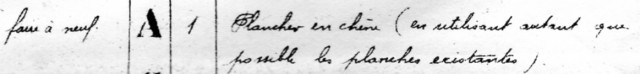 faire à neuf. A 1 Plancher en chêne (en utilisant autant que
possible les planches existantes).